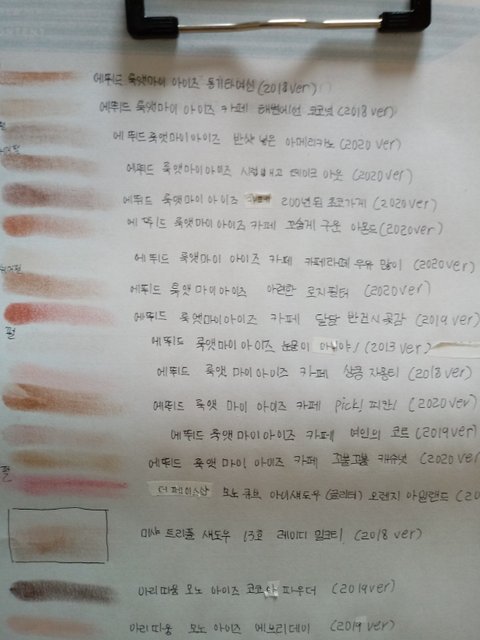 에뛰드 룩앳마이 아이즈 동기타여신 (2018 ver)
에뛰드 룩앳마이 아이즈 카페 태평에션 코코넛 (2018 ver)
펄
에뛰드 룩앳마이아이즈 반샷 넣은 아메리카노 (2020 ver)
쉬머펄
에뛰드 룩앳마이아이즈 시럽빼고 테이크 아웃 (2020 ver)
에뛰드 룩앳마이 아이즈 카페 200년된 초코가게 (2020 ver)
에뛰드 룩앳마이 아이즈 카페 고슬게 구운 아몬드 (2020 ver)
에뛰드 룩앳 마이 아이즈 카페 카페라떼 우유 많이 (2020 ver)
쉬머펄
에뛰드 룩앳 마이아이즈 아련한 로지필터 (2020 ver)
에뛰드 룩앳 마이아이즈 카페 달달 반건시 곶감 (2019 ver)
펄
에뛰드 룩앳마이아이즈 눈물이 아냐! (2013 ver)
에뛰드 룩앳 마이 아이즈 카페 상콤 자몽티 (2018 ver)
에뛰드 룩앳 마이 아이즈 카페 pick! 피칸! (2020 ver)
에뛰드 룩앳 마이 아이즈 카페 여인의 코트 (2019 ver)
에뛰드 룩앳 마이 아이즈 카페 꼬불꼬불 캐슈넛 (2020 ver
펄
더페이스샵 모노 큐브 아이섀도우 (글리터) 오렌지 아일랜드 (20
미샤 트리플 섀도우 13호 레이디 밀크티 (2018 ver)
아리따움 모노 아이즈 코코아 파우더 (2019 ver)
아리따움 모노 아이즈 에브리데이 (2019 ver)